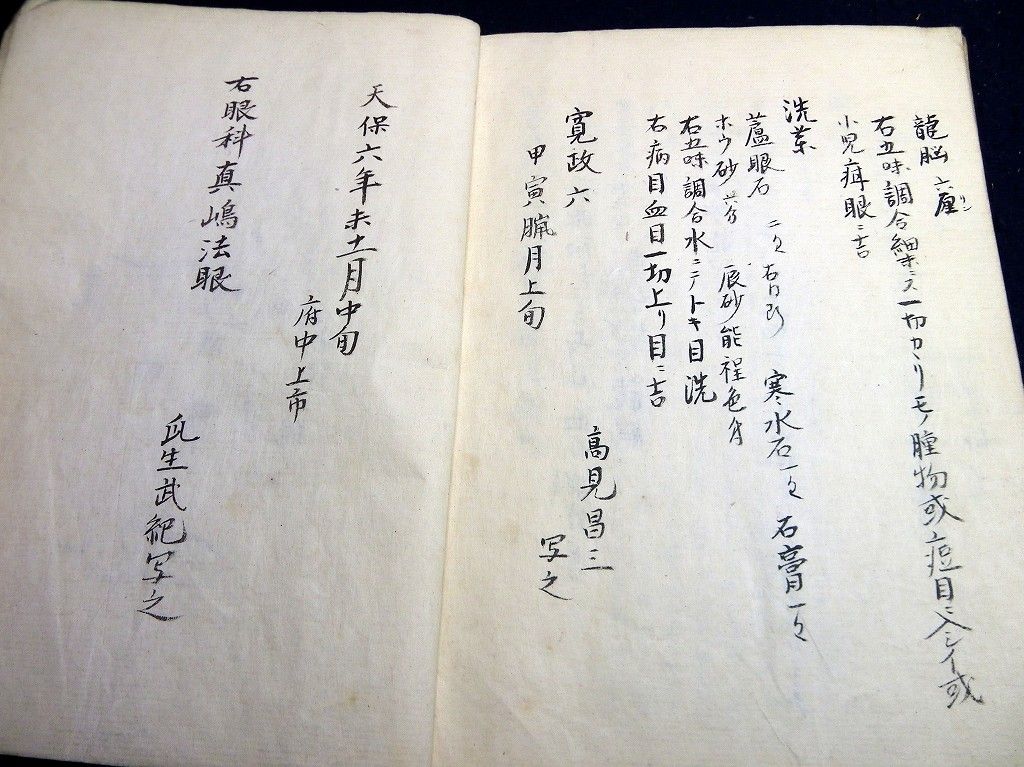 龍脳 六厘リン
右五味調合細末ニス一切カヽリモノ腫物或痘目ニ入シイ或
小児疳眼ニ吉
洗薬
蘆眼石 二匁 寒水石一匁 石膏一匁
ホウ砂 辰砂能程色付
右五味調合水ニテトキ目洗
右病目血目一切上リ目ニ吉
寛政六
甲寅臘月上旬
高見昌三
写之
天保六年未十一月中旬
府中上市
瓜生武紀写之
右眼科真嶋法眼